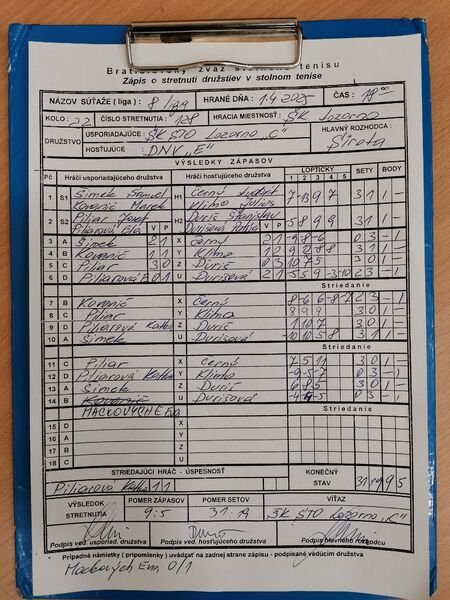 Bratislavský zväz stolného tenisu
Zápis o stretnutí družstiev v stolnom tenise
NÁZOV SÚŤAŽE ( liga ) : 8 liga HRANÉ DŇA : 1.4 2025 ČAS : 18 00
KOLO : 22 ČÍSLO STRETNUTIA : 128 HRACIA MIESTNOSŤ : ŠK Lozorno
DRUŽSTVO USPORIADAJÚCE : ŠK STO Lozorno „C" HLAVNÝ ROZHODCA :
HOSŤUJÚCE : DNV „E" Sirota
VÝSLEDKY ZÁPASOV
Pč Hráči usporiadajúceho družstva Hráči hosťujúceho družstva LOPTIČKY SETY BODY
1 2 3 4 5
1 S1 Šimek Samuel H1 Černý 7 -13 9 7 3 1 1 -
Kovarič Marek Klimo Július
2 S2 Piliar Jozef H2 Durič Stanislav 5 8 9 9 3 1 -
V P Durišová V P
3 A Šimek 2 1 X Černý 2 1 -9 -8 -6 0 3 - 1
4 B Kovarič 1 1 Y Klimo 3 1 1 -
5 C Piliar 3 0 Z Durič 0 3 10 7 5 3 0 1 -
6 D Piliarová 0 1 U Durišová 2 1 -5 5 9 -3 -10 2 3 - 1
Striedanie
7 B Kovarič X Černý 8 -6 6 -8 -7 2 3 - 1
8 C Piliar Y Klimo 8 9 9 3 0 1 -
9 D Piliarová Z Durič 3 0 1 -
10 A Šimek U Durišová 3 1 1 -
Striedanie
11 C Piliar X Černý 7 5 11 3 0 1 -
12 D Piliarová Y Klimo -9 -5 -7 0 3 - 1
13 A Šimek Z Durič 6 8 5 3 0 1 -
14 B Kovarič U Durišová 0 3 - 1
MACKOVÝCH Ema Striedanie
15 D X
16 A Y
17 B Z
18 C U
STRIEDAJÚCI HRÁČ - ÚSPEŠNOSŤ KONEČNÝ
STAV 31 19 9 5
Piliarova 1 1
VÝSLEDOK POMER ZÁPASOV POMER SETOV VÍŤAZ
STRETNUTIA 9 : 5 31 : 19 ŠK STO Lozorno „C"
Podpis ved. usporiad. družstva Podpis ved. hosťujúceho družstva Podpis hlavného rozhodcu
Prípadné námietky ( pripomienky ) uvádzať na zadnej strane zápisu - podpísané vedúcim družstva
Mackových Ema 0/1